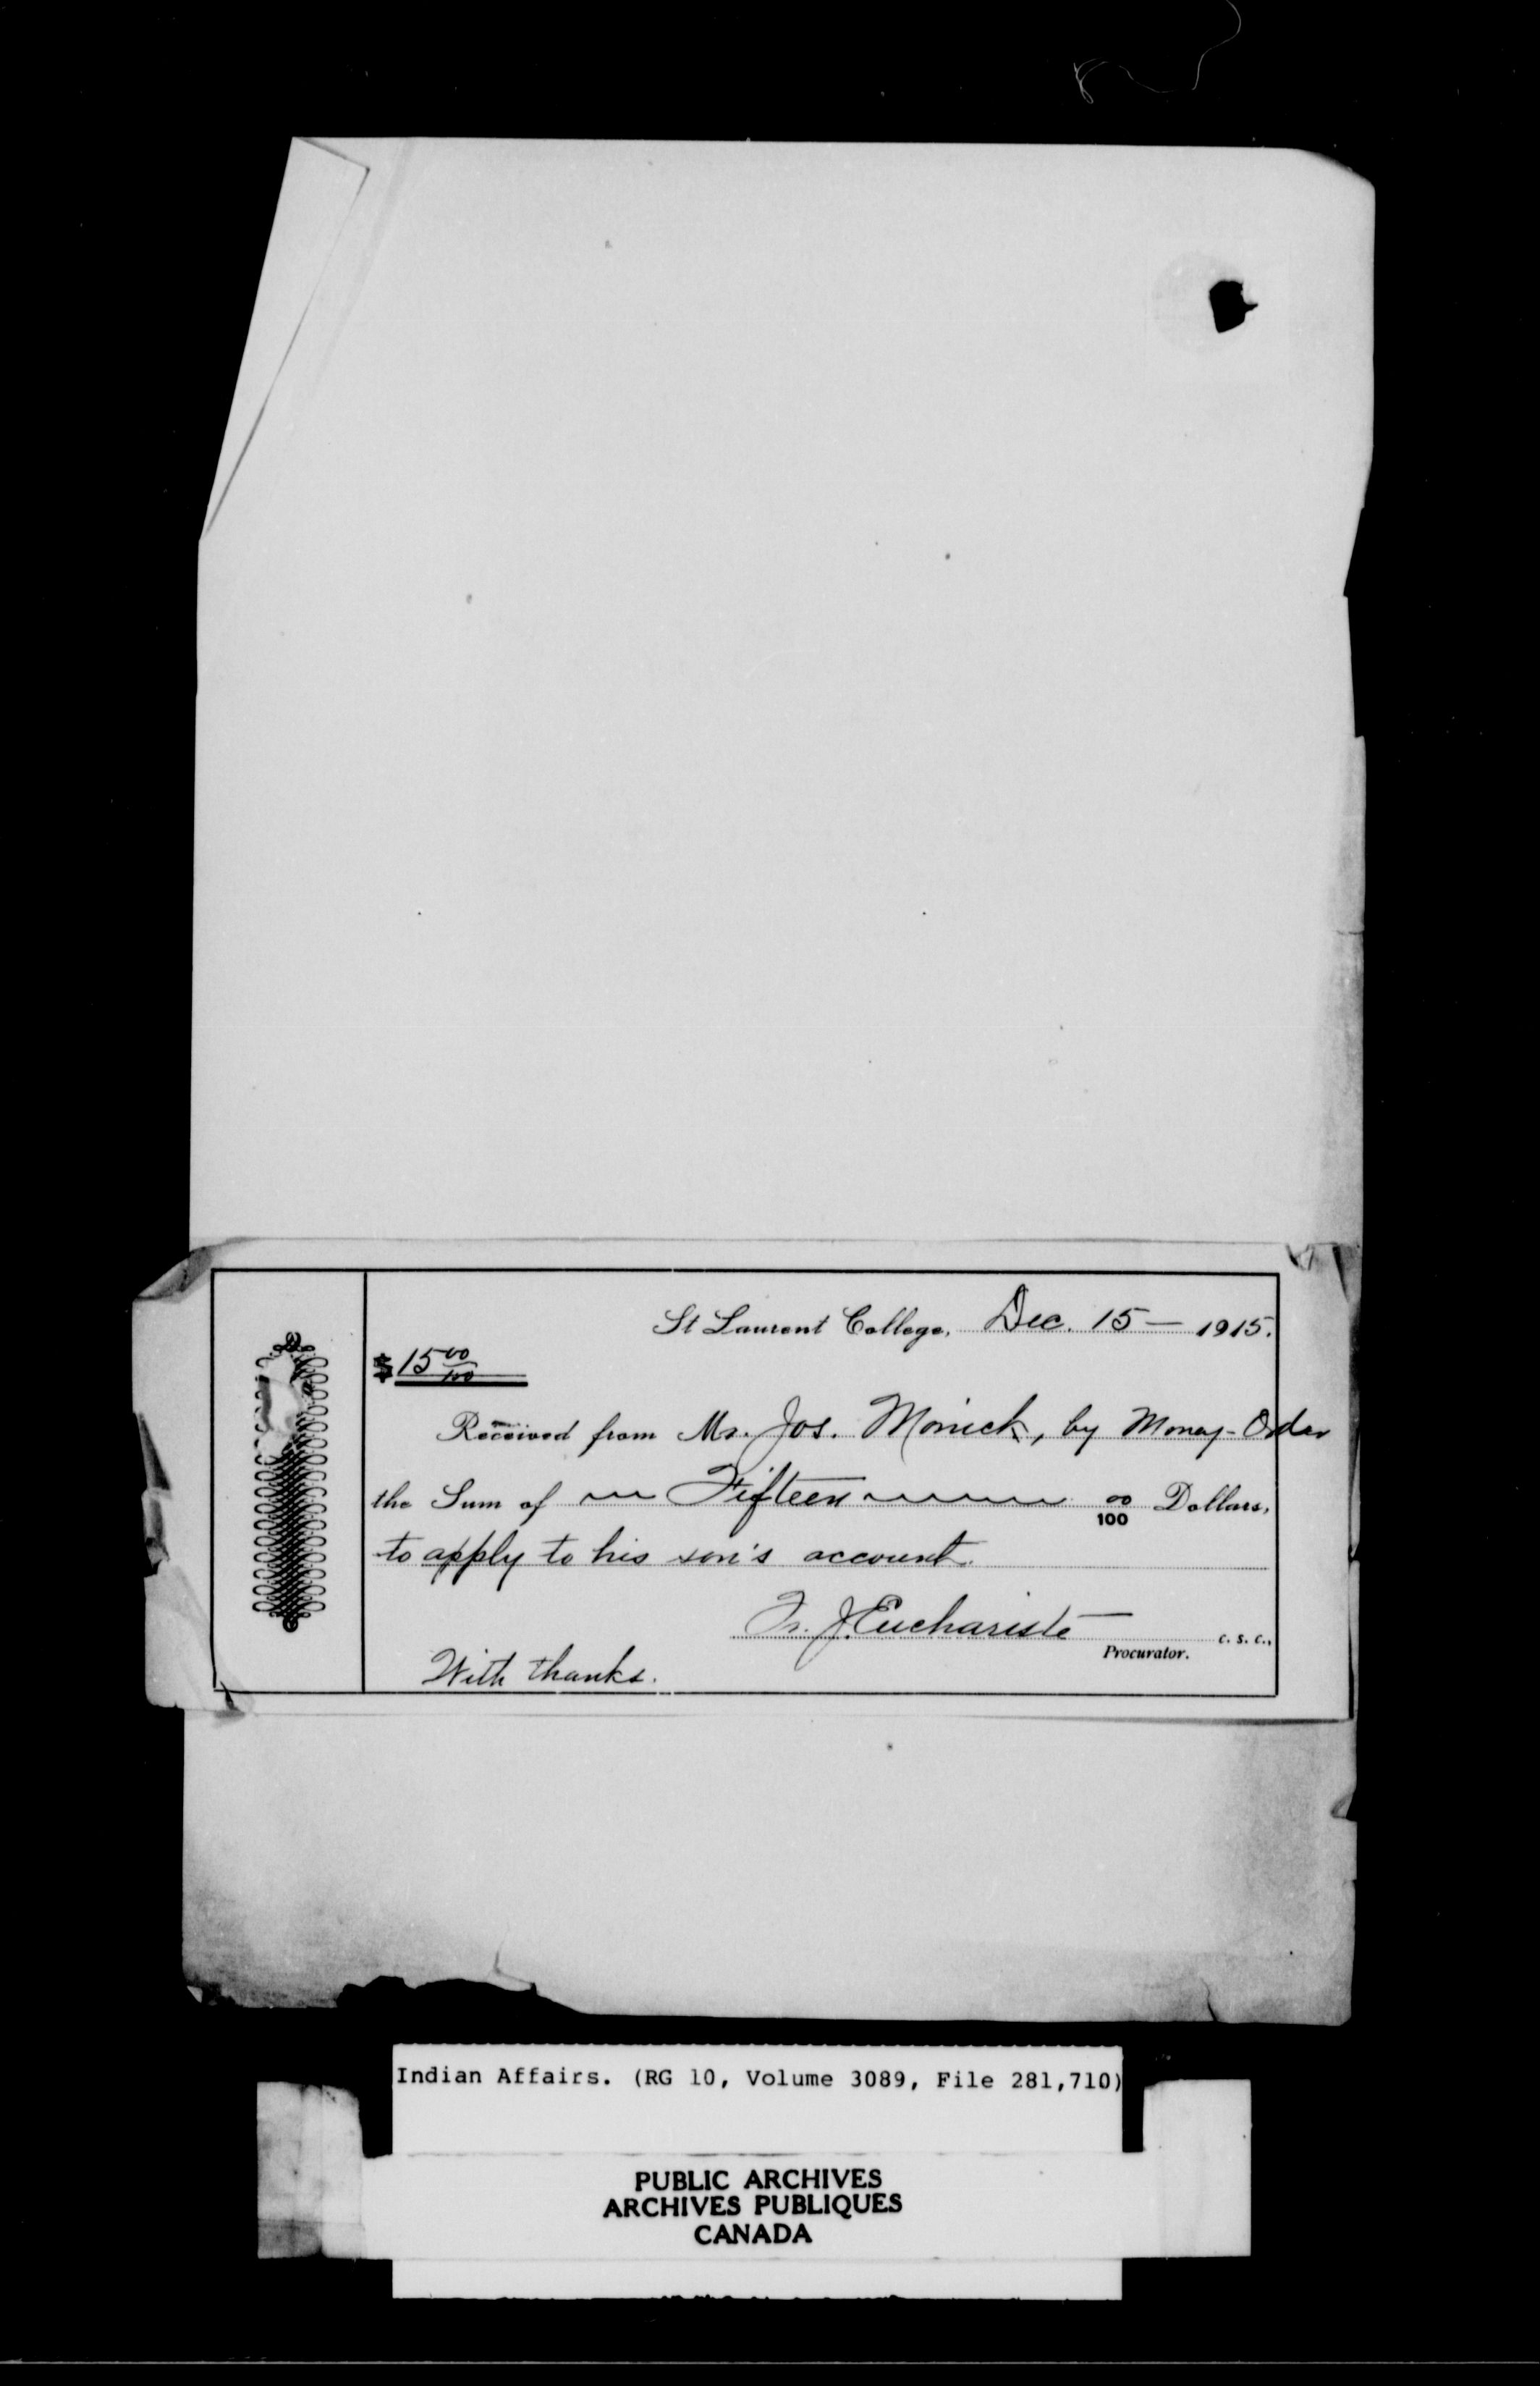 St Laurent College, Dec. 15 — 1915.
$ 15 00/100
Received from Mr. Jos. Monick, by Money-Order
the Sum of Fifteen 00/100 Dollars,
to apply to his son's account.
Fr. J. Euchariste c. s. c.,
Procurator.
With thanks.
Indian Affairs. (RG 10, Volume 3089, File 281,710)
PUBLIC ARCHIVES
ARCHIVES PUBLIQUES
CANADA